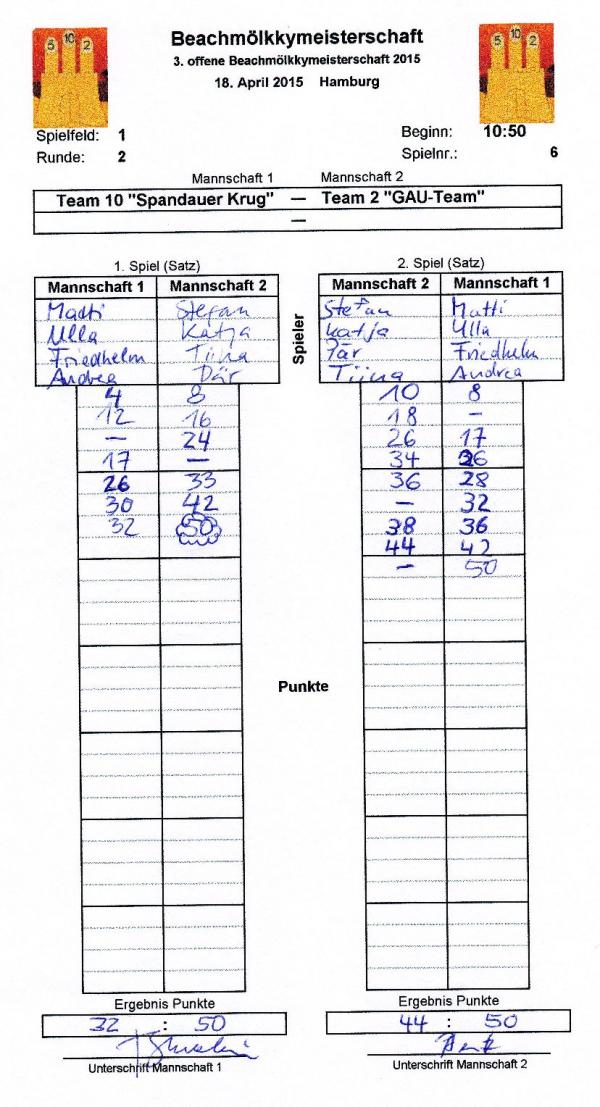 5 10 2
5 10 2
Beachmölkkymeisterschaft
3. offene Beachmölkkymeisterschaft 2015
18. April 2015 Hamburg
Spielfeld: 1 Beginn: 10:50
Runde: 2 Spielnr.: 6
Mannschaft 1 Mannschaft 2
Team 10 "Spandauer Krug" — Team 2 "GAU-Team"
—
1. Spiel (Satz) 2. Spiel (Satz)
Mannschaft 1 Mannschaft 2 Mannschaft 2 Mannschaft 1
Matti Stefan Stefan Matti
Ulla Katja Katja Ulla
Spieler
Friedhelm Tiina Pär Friedhelm
Andrea Pär Tiina Andrea
4 8 10 8
12 16 18 –
– 24 26 17
17 – 34 26
26 33 36 28
30 42 – 32
32 50 38 36
44 42
– 50
Punkte
Ergebnis Punkte Ergebnis Punkte
32 : 50 44 : 50
Unterschrift Mannschaft 1 Unterschrift Mannschaft 2